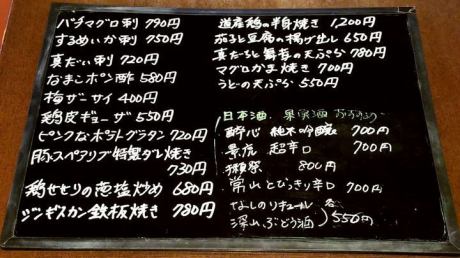 バチマグロ刺 790円
するめいか刺 750円
真だい刺 720円
なまこポン酢 580円
梅ザーサイ 400円
鶏皮ギョーザ 550円
ピンクなポテトグラタン 720円
豚スペアリブ特製ダレ焼き
730円
鶏せせりの葱塩炒め 680円
ジンギスカン鉄板焼き 780円
道産鶏の半身焼き 1,200円
茄子と豆腐の揚げ出し 650円
真だちと舞茸の天ぷら 780円
マグロかま焼き 700円
うどの天ぷら 550円
日本酒 果実酒
酔心 純米吟醸 700円
景虎 超辛口 700円
獺祭 800円
常山とびっきり辛口 700円
なしのリキュール 各
深山ぶどう酒 550円